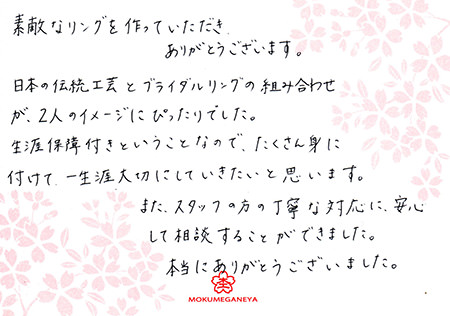 素敵なリングを作っていただき、
ありがとうございます。
日本の伝統工芸とブライダルリングの組み合わせ
が、2人のイメージにぴったりでした。
生涯保障付きということなので、たくさん身に
付けて、一生涯大切にしていきたいと思います。
また、スタッフの方の丁寧な対応に、安心
して相談することができました。
本当にありがとうございました。
MOKUMEGANEYA